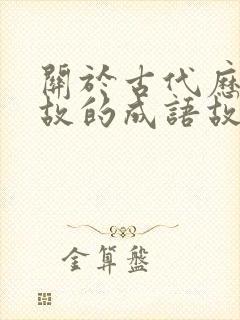 關於古代歷
故的成語故
金算盤